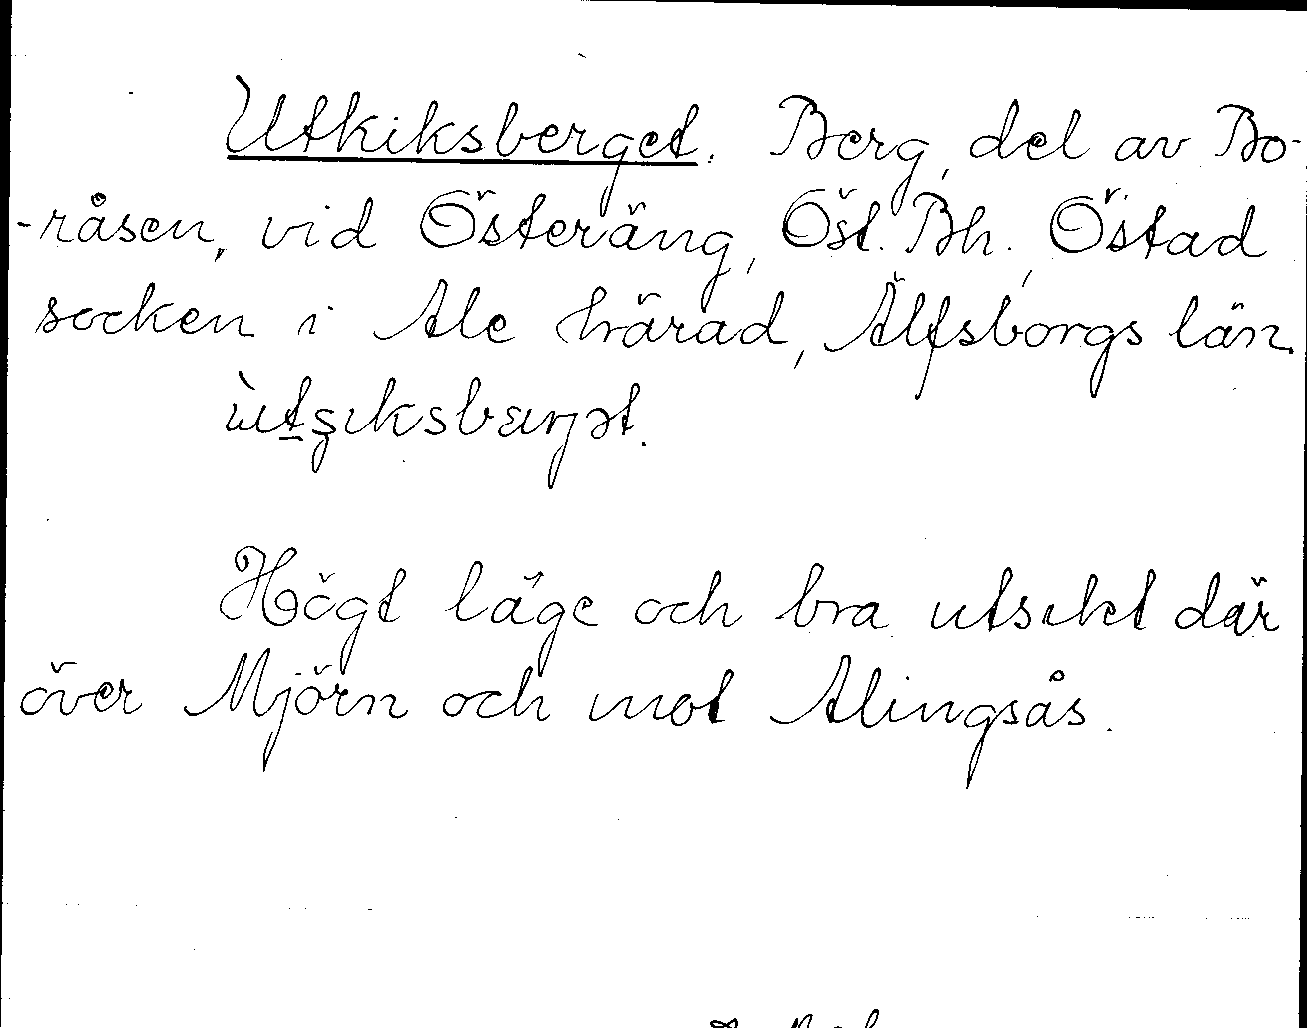 Utkiksberget. Berg, del av Bo-
-råsen, vid Österäng, Öst. Bh., Östad
socken i Ale härad, Älfsborgs län.
Högt läge och bra utsikt där
över Mjörn och mot Alingsås.